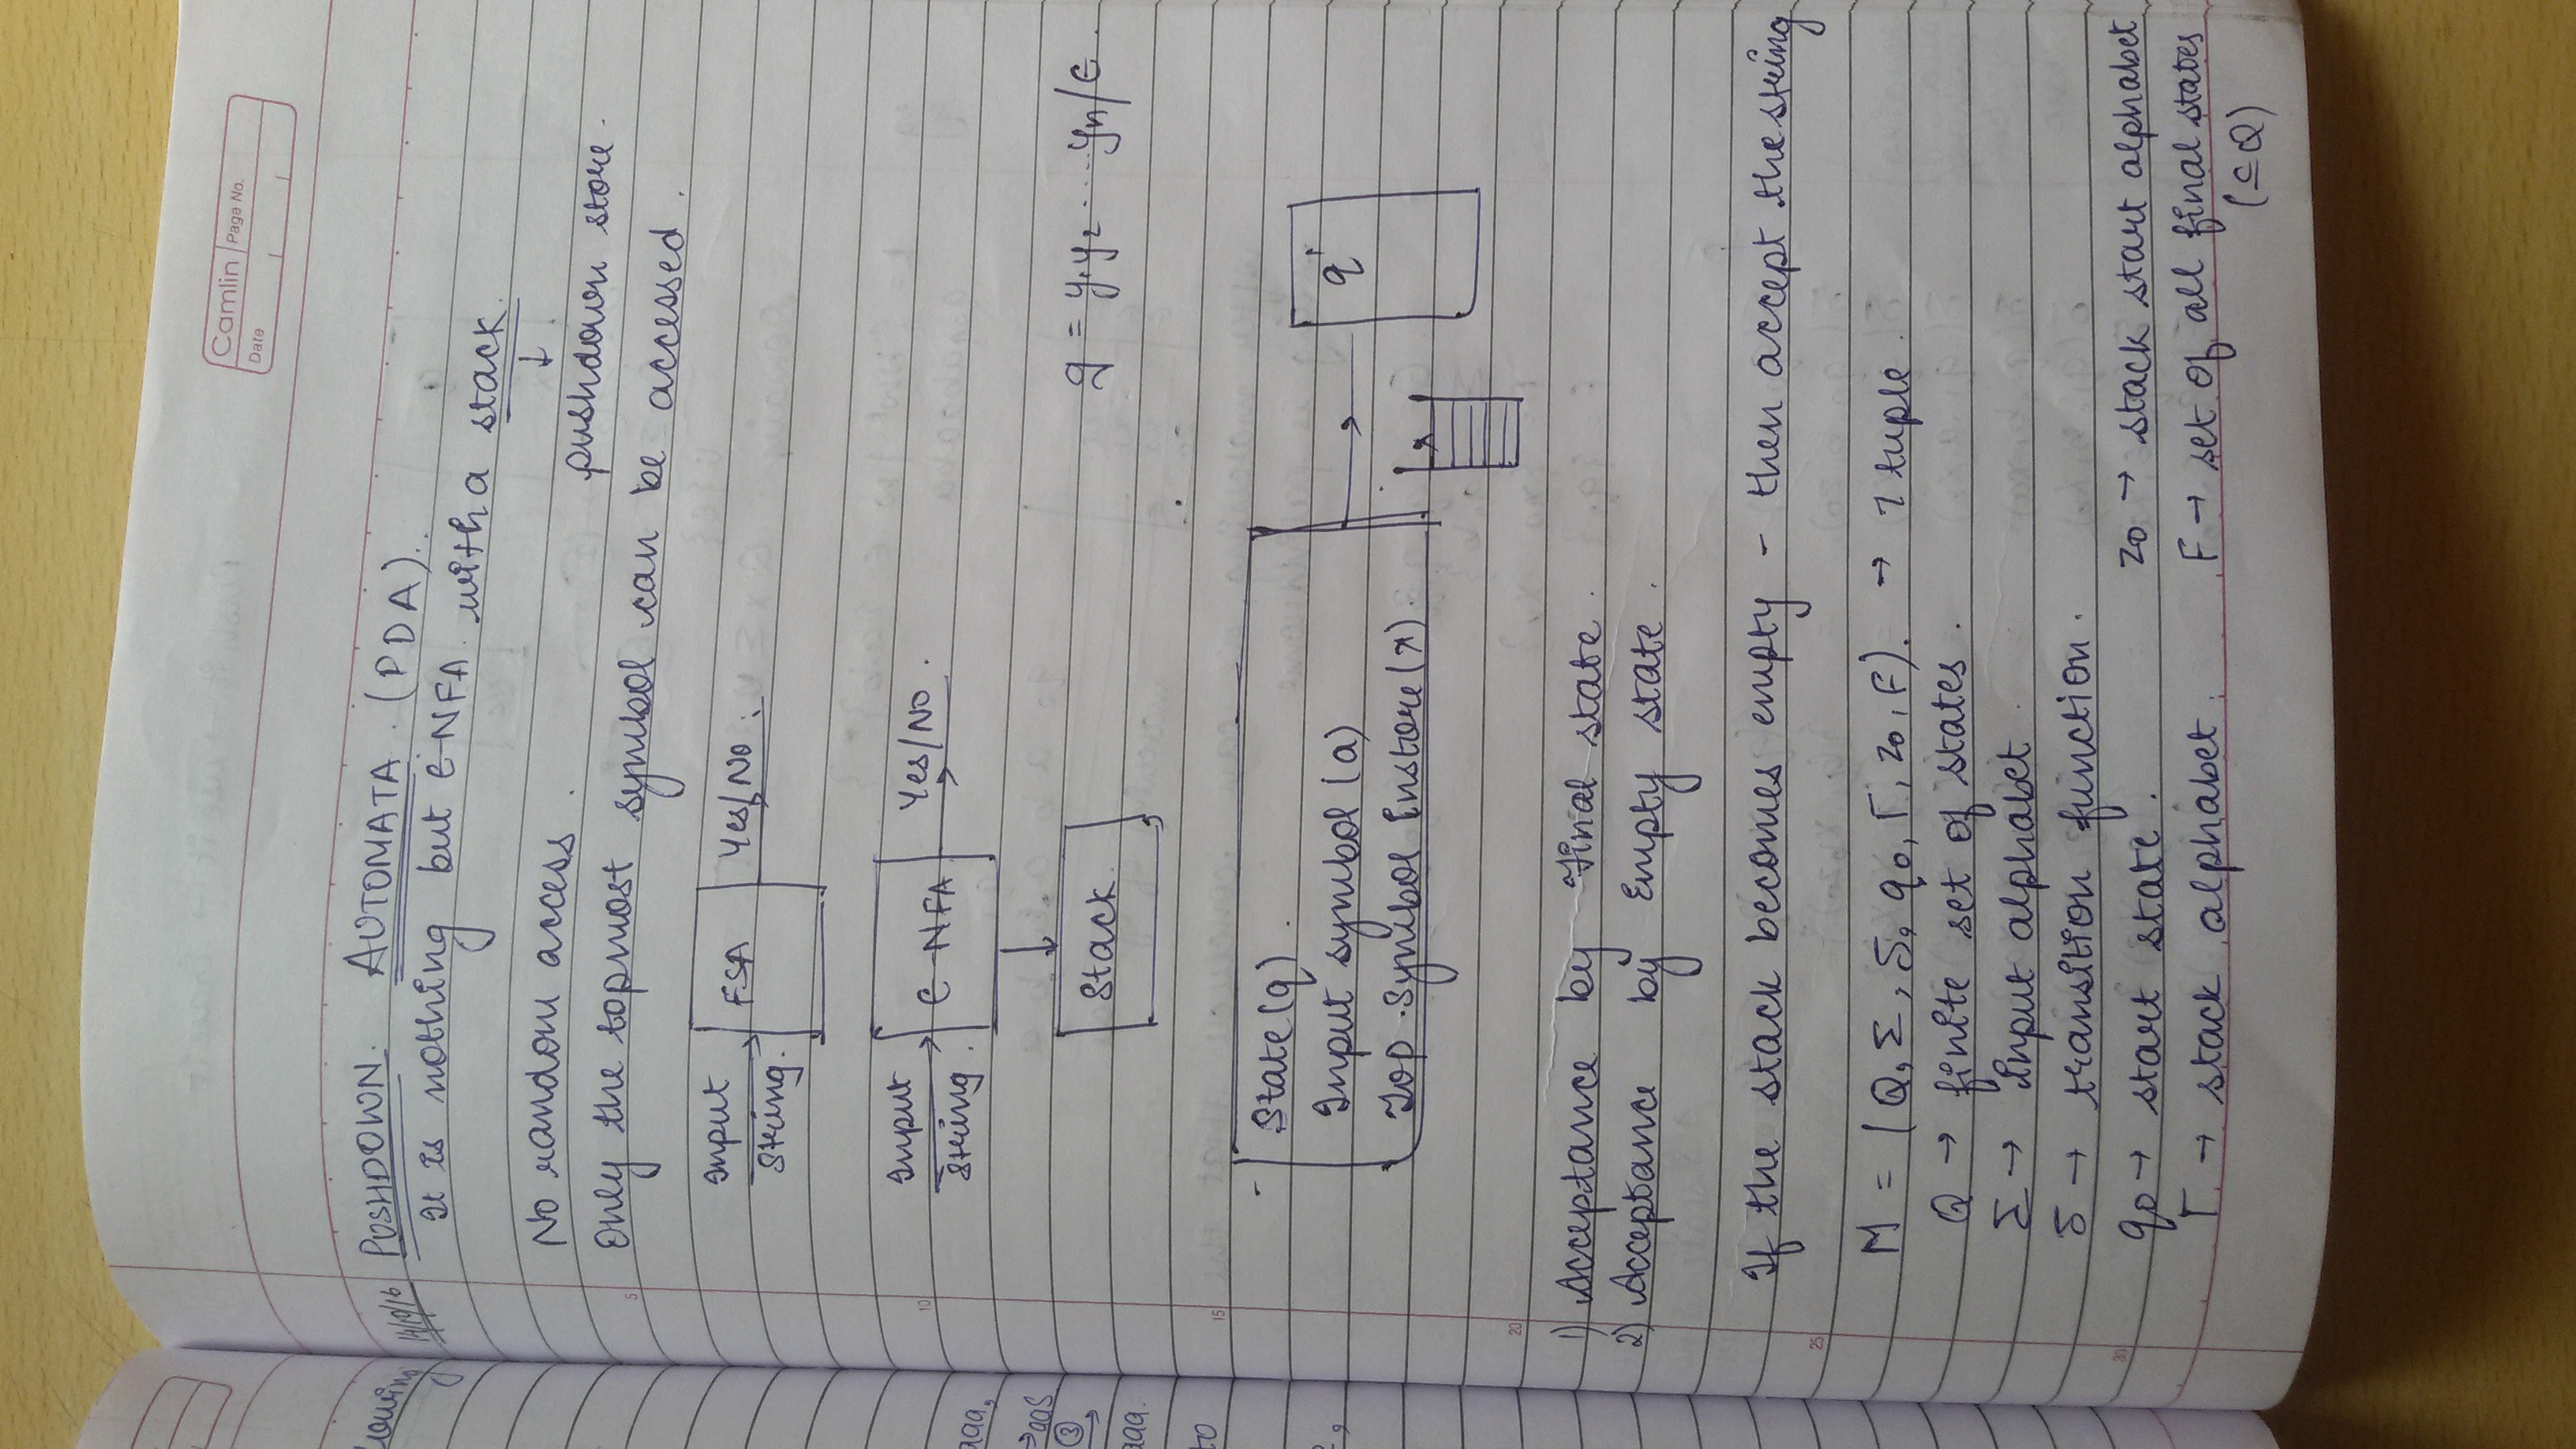 Camlin Page No.
Date
14/10/16 PUSHDOWN AUTOMATA (PDA).
It is nothing but ε-NFA with a stack.
↓
No random access. pushdown store.
Only the topmost symbol can be accessed.
5
Input
String.
FSA
Yes/No.
Input
String.
ε-NFA
Yes/No.
10
Stack
y = y1y2 .... yn/ε.
15
State(q).
Input symbol (a)
Top symbol instore(x).
q'
x
20
1) Acceptance by Final state.
2) Acceptance by Empty state.
If the stack becomes empty - then accept the string
25
M = (Q, Σ, δ, q0, Γ, z0, F). → 7 tuple.
Q → finite set of states.
Σ → input alphabet
δ → transition function.
30
q0 → start state. z0 → stack start alphabet
Γ → stack alphabet. F → set of all final states
(⊆Q)
lowing
aaa,
→aaS
③
aaa.
to